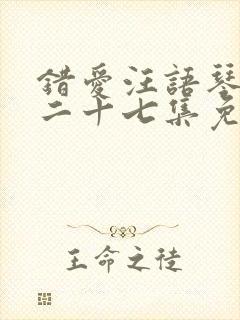 錯愛汪語琴
二十七集免
王命之徒